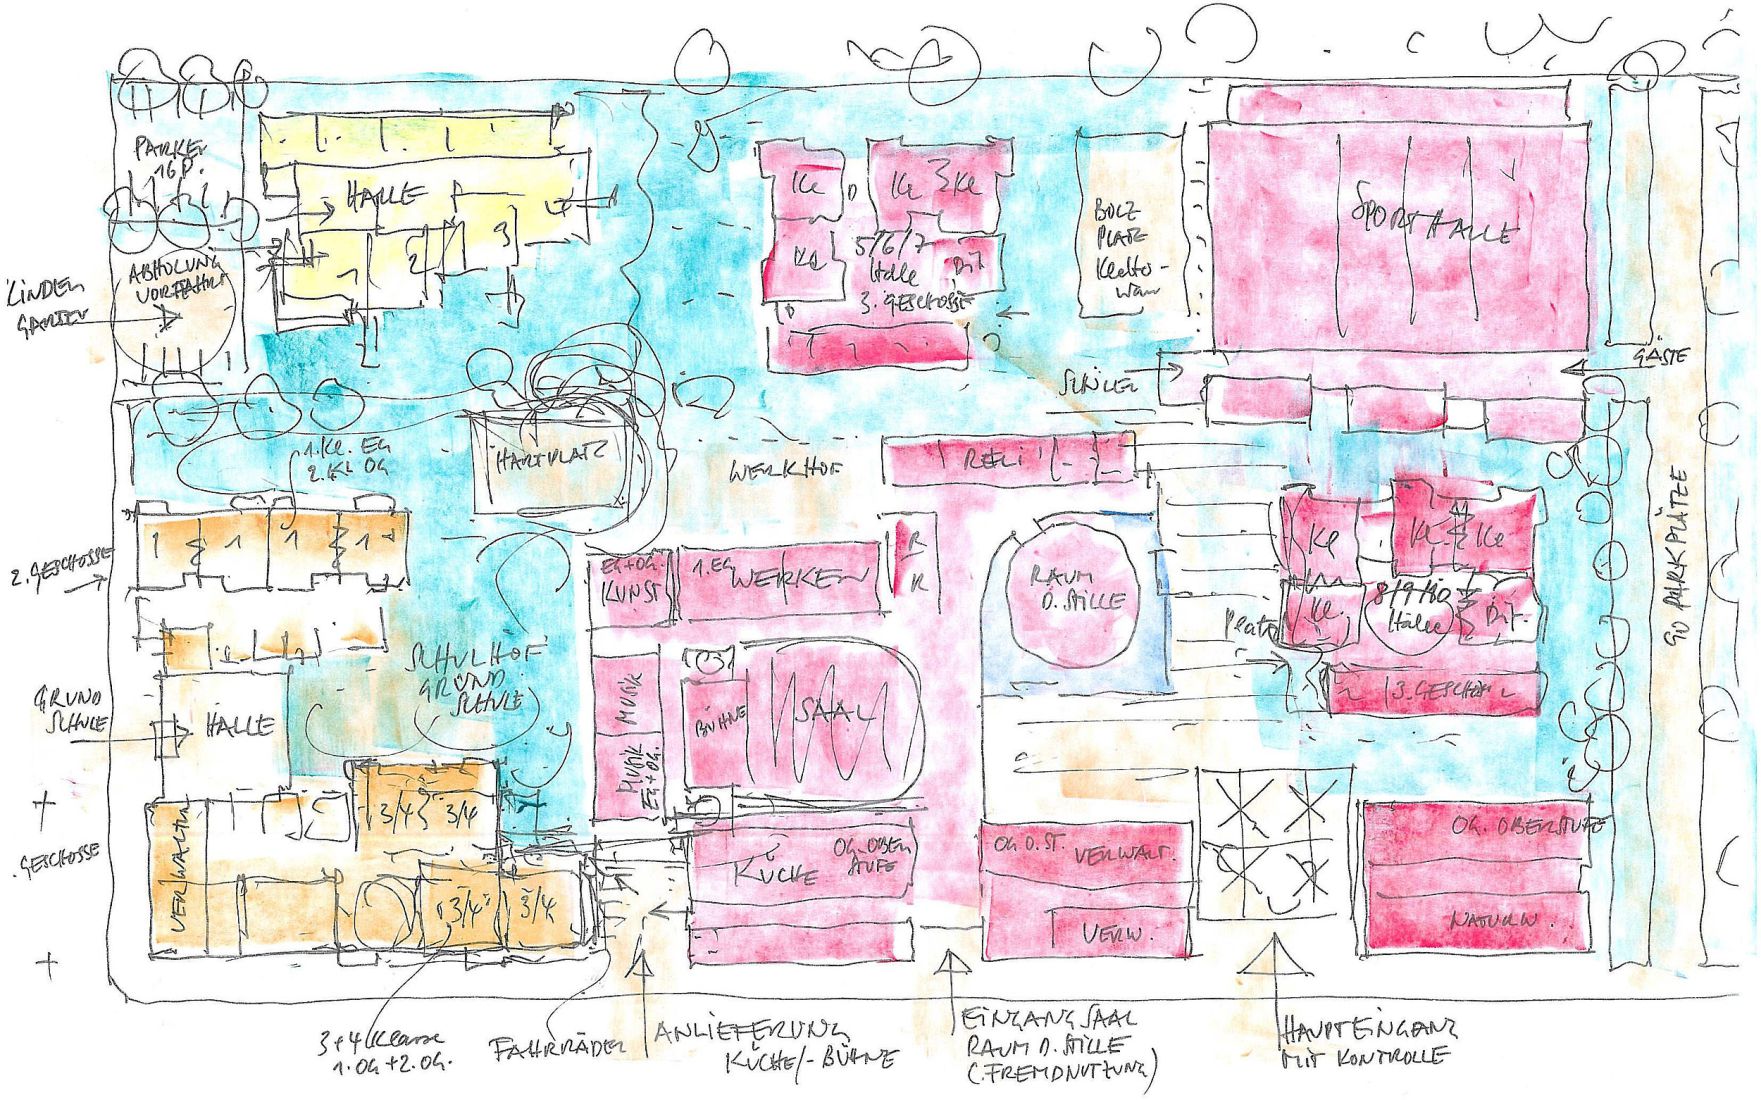 PARKEN
16 P.
ABHOLUNG
VORFAHRT
KINDER
GARTEN
HALLE
1
2
3
Ke
Ke
3 Ke
Ke
5/6/7
Halle
Dif
3. GESCHOSSE
BOLZ
PLATZ
SPORTHALLE
GÄSTE
SCHÜLER
1. Kl. EG
2. Kl OG
HARTPLATZ
WERKHOF
RELI
2. GESCHOSSE
1
1
1
1
EG+OG.
KUNST
1. EG
WERKEN
RAUM
D. STILLE
Ke
Ke
Ke
Ke.
8/9/10
Halle
Dif.
3. GESCH
90 PARKPLÄTZE
SCHULHOF
GRUND
SCHULE
GRUND
SCHULE
HALLE
MUSIK
MUSIK
EG+OG.
BÜHNE
SAAL
3/4
3/4
GESCHOSSE
VERWALTUNG
3/4
3/4
KÜCHE
OG. OBER
STUFE
OG O.ST.
VERWALT.
VERW.
OG. OBERSTUFE
NATURW.
3+4 Klasse
1. OG + 2. OG.
FAHRRÄDER
ANLIEFERUNG
KÜCHE/-BÜHNE
EINGANG SAAL
RAUM D. STILLE
(FREMDNUTZUNG)
HAUPTEINGANG
MIT KONTROLLE